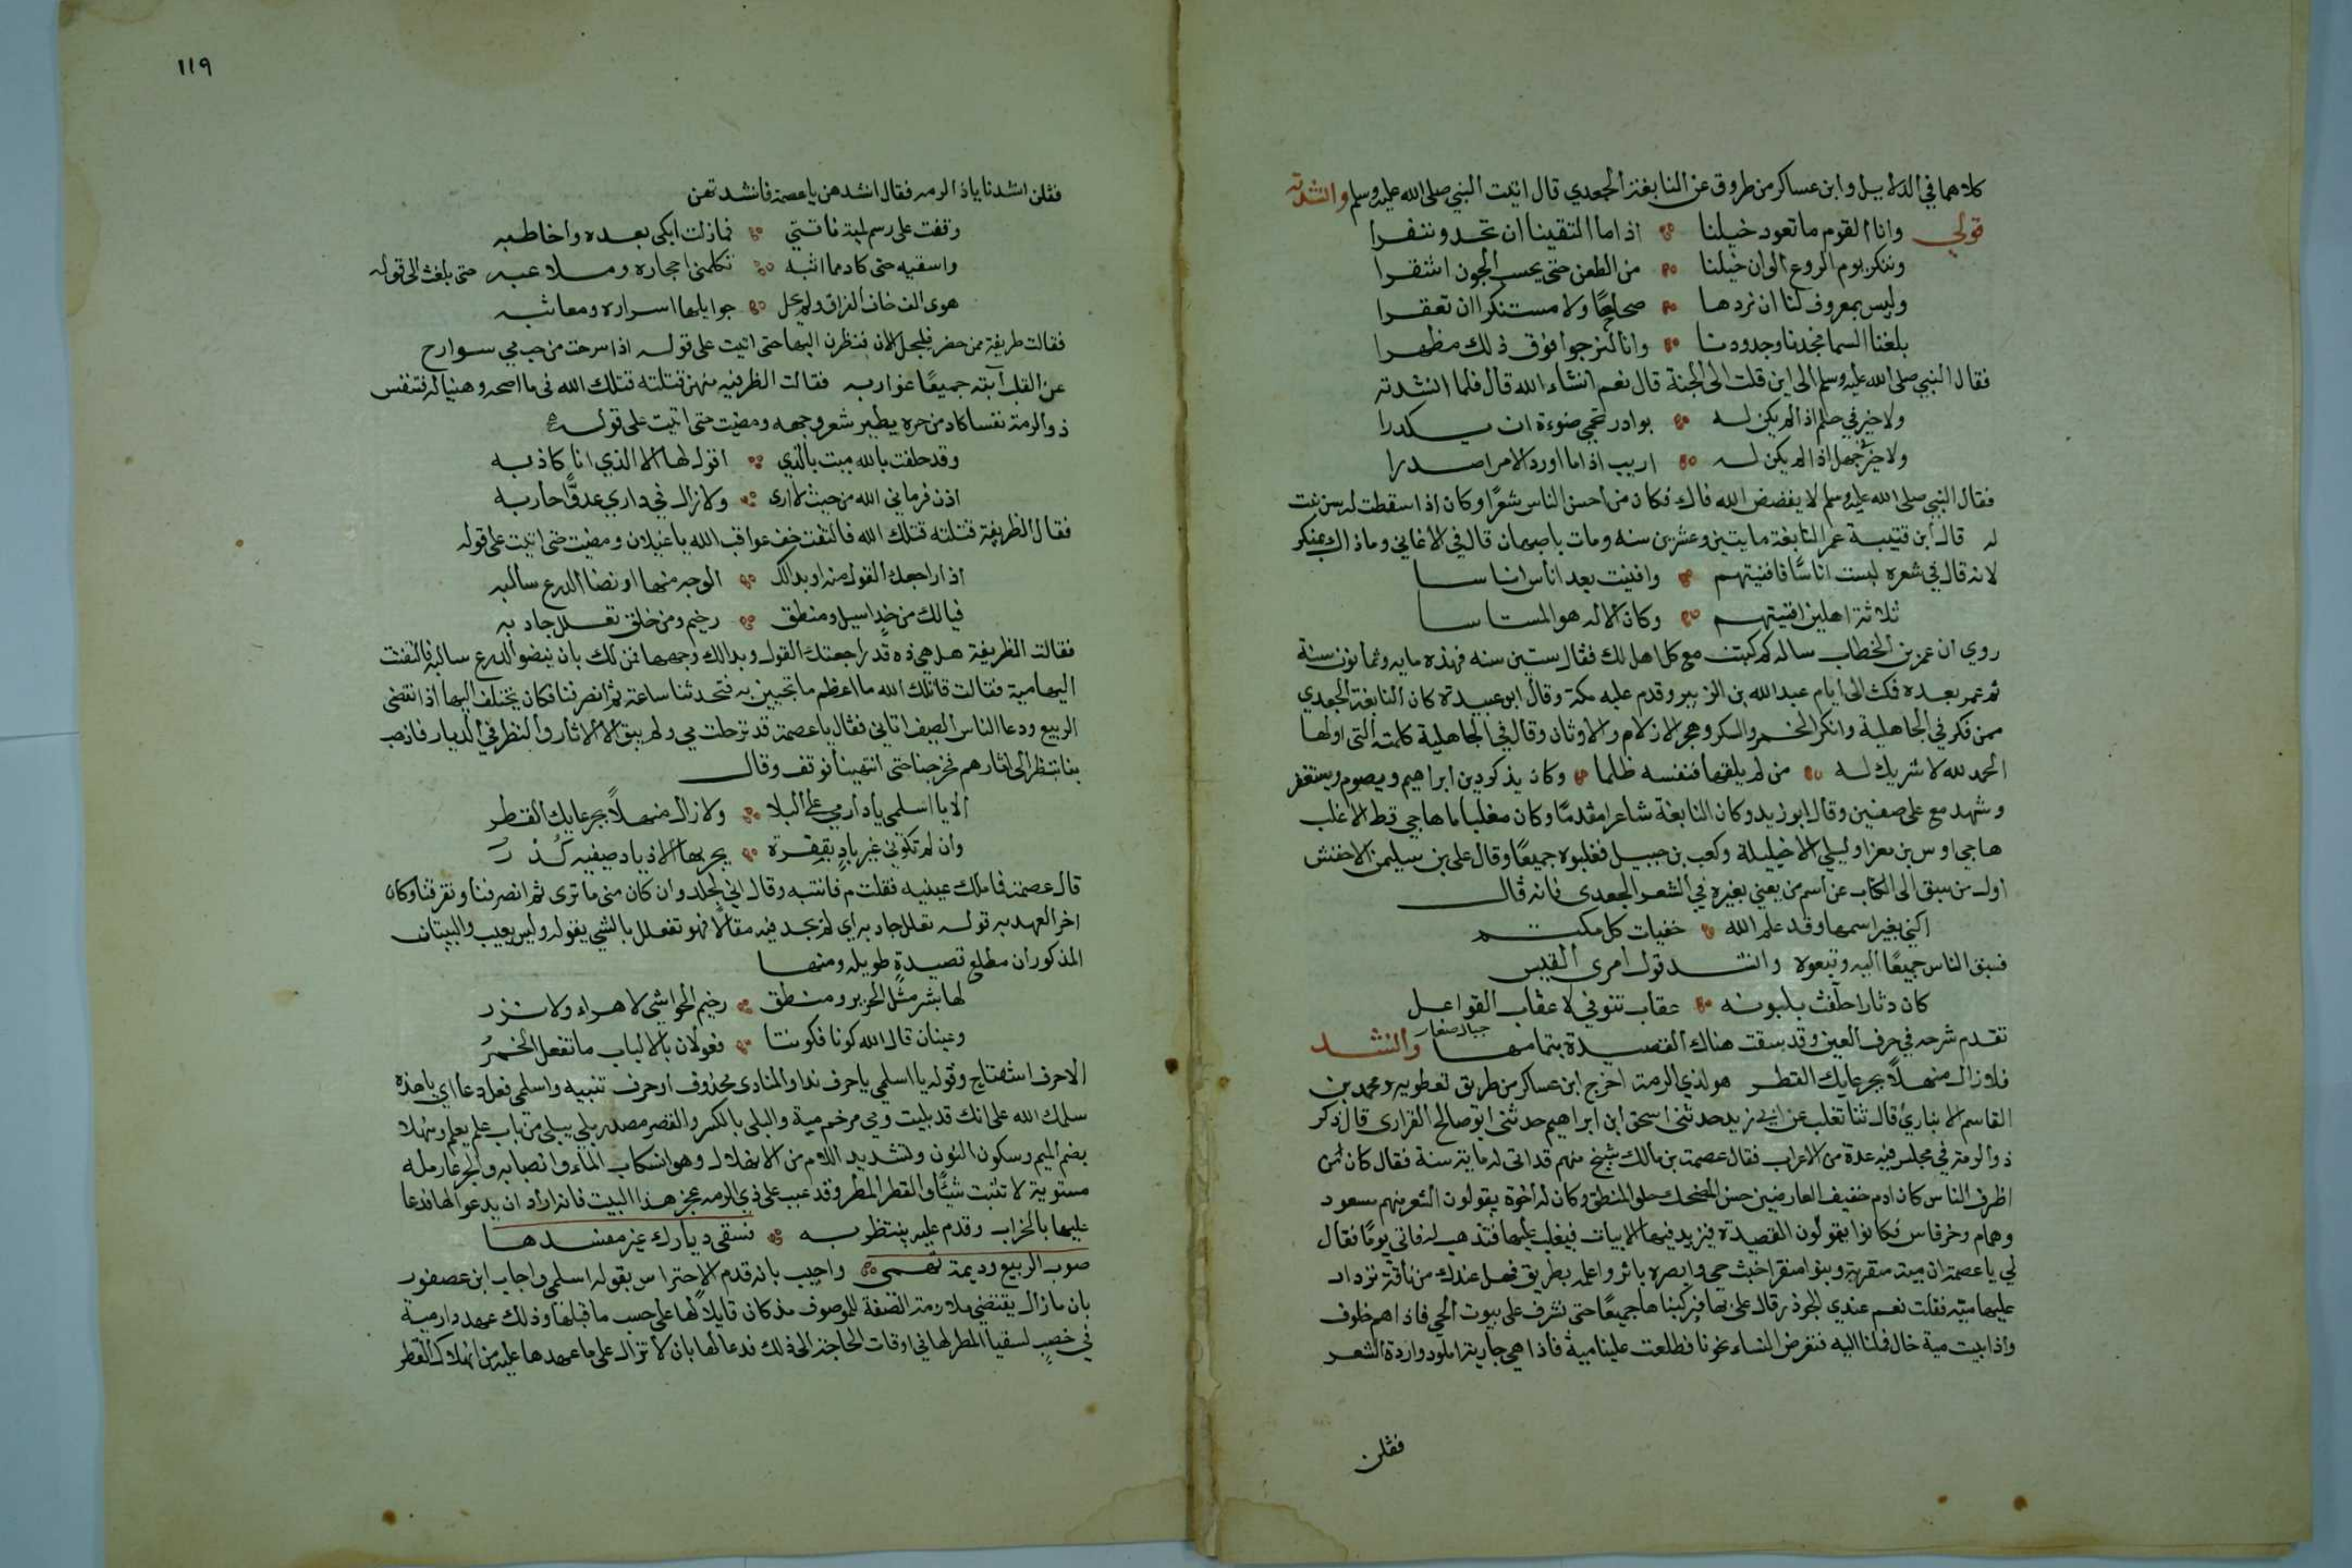 كلاهما في الدلايل وابن عساكر من طروق عن النابغة الجعدي قال اتيت النبي صلى الله عليه وسلم وانشدته
قولي وانا لقوم ما تعود خيلنا اذا ما التقينا ان تحد وتنفرا
وننكر يوم الروع الوان خيلنا من الطعن حتى يحسب الجون اشقرا
وليس بمعروف لنا ان نردها صحاحا ولا مستنكرا ان تعقرا
بلغنا السما مجدنا وجدودنا وانا لنرجوا فوق ذلك مظهرا
فقال النبي صلى الله عليه وسلم الى اين قلت الى الجنة قال نعم انشاء الله قال فلما انشدته
ولا خير في حلم اذا لم يكن له بوادر تحمي صفوه ان يكدرا
ولا خير في جهل اذا لم يكن له اريب اذا ما اورد الامر اصدرا
فقال النبي صلى الله عليه وسلم لا يفضض الله فاك فكان من احسن الناس شعرًا وكان اذا سقطت له سن نبتت
له قال ابن قتيبة عمر النابغة مايتين وعشرين سنه ومات باصبهان قال في الاغاني وما ذاك بمنكر
لانه قال في شعره لبست اناسًا فافنيتهم وافنيت بعد اناس اناسا
ثلاثة اهلين افنيتهم وكان الاله هو المستاسا
روي ان عمر بن الخطاب ساله كم لبثت مع كل اهل لك فقال ستين سنه فهذه مايه وثمانون سنة
ثم عمر بعده فمكث الى ايام عبد الله بن الزبير وقدم عليه مكة وقال ابو عبيدة كان النابغة الجعدي
ممن فكر في الجاهلية وانكر الخمر والسكر وهجر الازلام والاوثان وقال في الجاهلية كلمته التي اولها
الحمد لله لا شريك له من لم يقلها فنفسه ظلما وكان يذكر دين ابراهيم ويصوم ويستغفر
وشهد مع علي صفين وقال ابو زيد وكان النابغة شاعرا مقدمًا وكان مغلبا ما هاجي قط الا غلب
هاجي اوس بن مغرا وليلي الاخيليلة وكعب بن جعيل فغلبوه جميعًا وقال علي بن سليمن الاخفش
اول من سبق الى الكناب عن اسم من يعني بغيره في الشعر الجعدي فانه قال
اكني بغير اسمها وقد علم الله خفيات كل مكتتم
فسبق الناس جميعًا اليه وتبعوه وانشد قول امرى القيس
كان دثارا حلقت بلبونه عقاب تنوفي لا عقاب القواعل
تقدم شرحه في حرف العين وقد سقت هناك القصيدة بتمامها جبال صغار وانشد
فلا زال منهلا بجرعايك القطر هو لذي الرمة اخرج ابن عساكر من طريق نفطويه ومحمد بن
القاسم الانباري قال ثنا ثعلب عن ابي زيد حدثني اسحق ابن ابراهيم حدثني ابو صالح الفزاري قال ذكر
ذو الرمة في مجلس فيه عدة من الاعراب فقال عصمة بن مالك شيخ منهم قد اتى له ماية سنة فقال كان من
اظرف الناس كان ادم خفيف العارضين حسن المضحك حلو المنطق وكان له اخوة يقولون الشعر منهم مسعود
وهمام وخرقاس فكانوا يقولون القصيدة فيزيد فيها الابيات فيغلب عليها فتذهب له فاتي يومًا فقال
لي يا عصمة ان مية منقرية وبنوا منقر اخبث حي وابصره باثر واعلمه بطريق فهل عندك من ناقة نزدار
عليها ميه فقلت نعم عندي الجوذر قال علي بها فركبناها جميعًا حتى نشرف على بيوت الحي فاذا هم خلوف
واذا بيت مية خال فملنا اليه فتعرض النساء نحونا فطلعت علينا مية فاذا هي جارية املود واردة الشعر
فقلن
119
فقلن انشدنا ياذا الرمه فقال انشدهن يا عصمة فانشدتهن
وقفت على رسم لمية ناقتي فمازلت ابكي بعده واخاطبه
واسقيه حتى كاد مما ابثه تكلمني احجاره وملاعبه حتى بلغت الى قوله
هوى الف خاف الفراق ولم تحل جوايلها اسراره ومعاتبه
فقالت ظريفة ممن حضر فليجل الان فنظرن اليها حتى اتيت على قوله اذا سرحت من حب مي سوارح
عن القلب آبته جميعًا عوازبه فقالت الظريفه منهن قتلته قتلك الله فى ما اصحه وهنياله فتنفس
ذو الرمة نفسا كاد من حره يطير شعر وجهه ومضيت حتى اتيت على قوله
وقد حلفت بالله مية بالذي اقول لها الا الذي انا كاذبه
اذن فرماني الله من حيث لا ارى ولا زال في داري عدوًّا حاربه
فقال الظريفة قتلته قتلك الله فالتفت خف عواقب الله يا غيلان ومضيت حتى اتيت على قوله
اذا راجعك القول منه او بدالك الوجه منها او نضا الدرع سالبه
فيالك من خد اسيل ومنطق رخيم ومن خلق تعلل جادبه
فقالت الظريفة هل هي ذه قد راجعتك القول وبدالك وجهها فمن لك بان ينضو الدرع سالبه فالتفتت
اليها مية فقالت قاتلك الله ما اعظم ما تجيين به فتحدثنا ساعة ثم انصرفنا فكان يختلف اليها اذا انقضى
الربيع ودعا الناس الصيف اتاني فقال يا عصمة قد ترحلت مي ولم يبق الا الاثار والنظر في الديار فاذهب
بنا ننظر الى اثارهم فخرجنا حتى انتهينا فوقف وقال
الا يا اسلمي يا دار مي على البلا ولا زال منهلاً بجرعايك القطر
وان لم تكوني غير باد بقفرة يجر بها الاذيال صيفيه كدر
قال عصمة فما ملك عينيه فقلت مه فانتبه وقال اني لجلد وان كان مني ما ترى ثم انصرفنا وتفرقنا وكان
اخر العهد به قوله تعلل جادبه اي لم يجد فيه مقالًا فهو تفعلل بالشي يقوله وليس بعيب والبيتان
المذكوران مطلع قصيدة طويله ومنها
لها بشر مثل الحرير ومنطق رخيم الحواشي لا هراء ولا نزر
وعينان قال الله كونا فكونتا فعولان بالالباب ما تفعل الخمرُ
الا حرف استفتاح وقوله يا اسلمي يا حرف ندا والمنادى محذوف او حرف تنبيه واسلمي فعل دعا اي يا هذه
سلمك الله على انك قد بليت ومي مرخم مية والبلي بالكسر والقصر مصدر بلي يبلى من باب علم يعلم ومنهلا
بضم الميم وسكون النون وتشديد اللام من الانهلال وهو انسكاب الماء وانصبابه والجرعا رملة
مستوية لا تنبت شيئًا والقطر المطر وقد عيب على ذي الرمه عجز هذا البيت فانه اراد ان يدعو لها فدعا
عليها بالخراب وقدم عليه بيت طرفه فسقى ديارك غير مفسدها
صوب الربيع وديمة تهمي واجيب بانه قدم الاحتراس بقوله اسلمي واجاب ابن عصفور
بان مازال يقتضي ملازمة الصفة للموصوف مذ كان قابلاً لها على حسب ما قبلها وذلك عهد دار مية
في خصب لسقيا المطر لها في اوقات الحاجة الى ذلك فدعا لها بان لا تزال على ما عهدها عليه من انهلال القطر